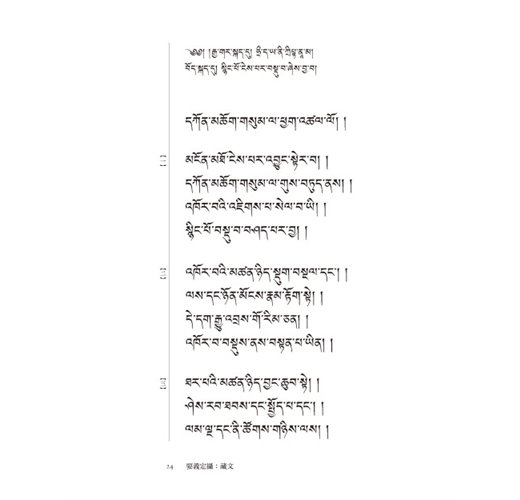 ༄༅། །རྒྱ་གར་སྐད་དུ། ཧྲི་ད་ཡ་ནི་ཀྵིཔྟ་ནཱ་མ།
བོད་སྐད་དུ། སྙིང་པོ་ངེས་པར་བསྡུ་བ་ཞེས་བྱ་བ།
དཀོན་མཆོག་གསུམ་ལ་ཕྱག་འཚལ་ལོ། །
【一】 མངོན་མཐོ་ངེས་པར་འབྱུང་སྟེར་བ། །
དཀོན་མཆོག་གསུམ་ལ་གུས་བཏུད་ནས། །
འཁོར་བའི་འཇིགས་པ་སེལ་བ་ཡི། །
སྙིང་པོ་བསྡུ་བ་བཤད་པར་བྱ། །
【二】 འཁོར་བའི་མཚན་ཉིད་སྡུག་བསྔལ་དང་། །
ལས་དང་ཉོན་མོངས་རྣམ་རྟོག་སྟེ། །
དེ་དག་རྒྱུ་འབྲས་གོ་རིམ་ཅན། །
འཁོར་བ་བསྡུས་ནས་བསྟན་པ་ཡིན། །
【三】 ཐར་པའི་མཚན་ཉིད་བྱང་ཆུབ་སྟེ། །
ཤེས་རབ་ཐབས་དང་སྤྱོད་པ་དང་། །
ལམ་ལྔ་དང་ནི་ཚོགས་གཉིས་ལས། །
24 要義定攝：藏文